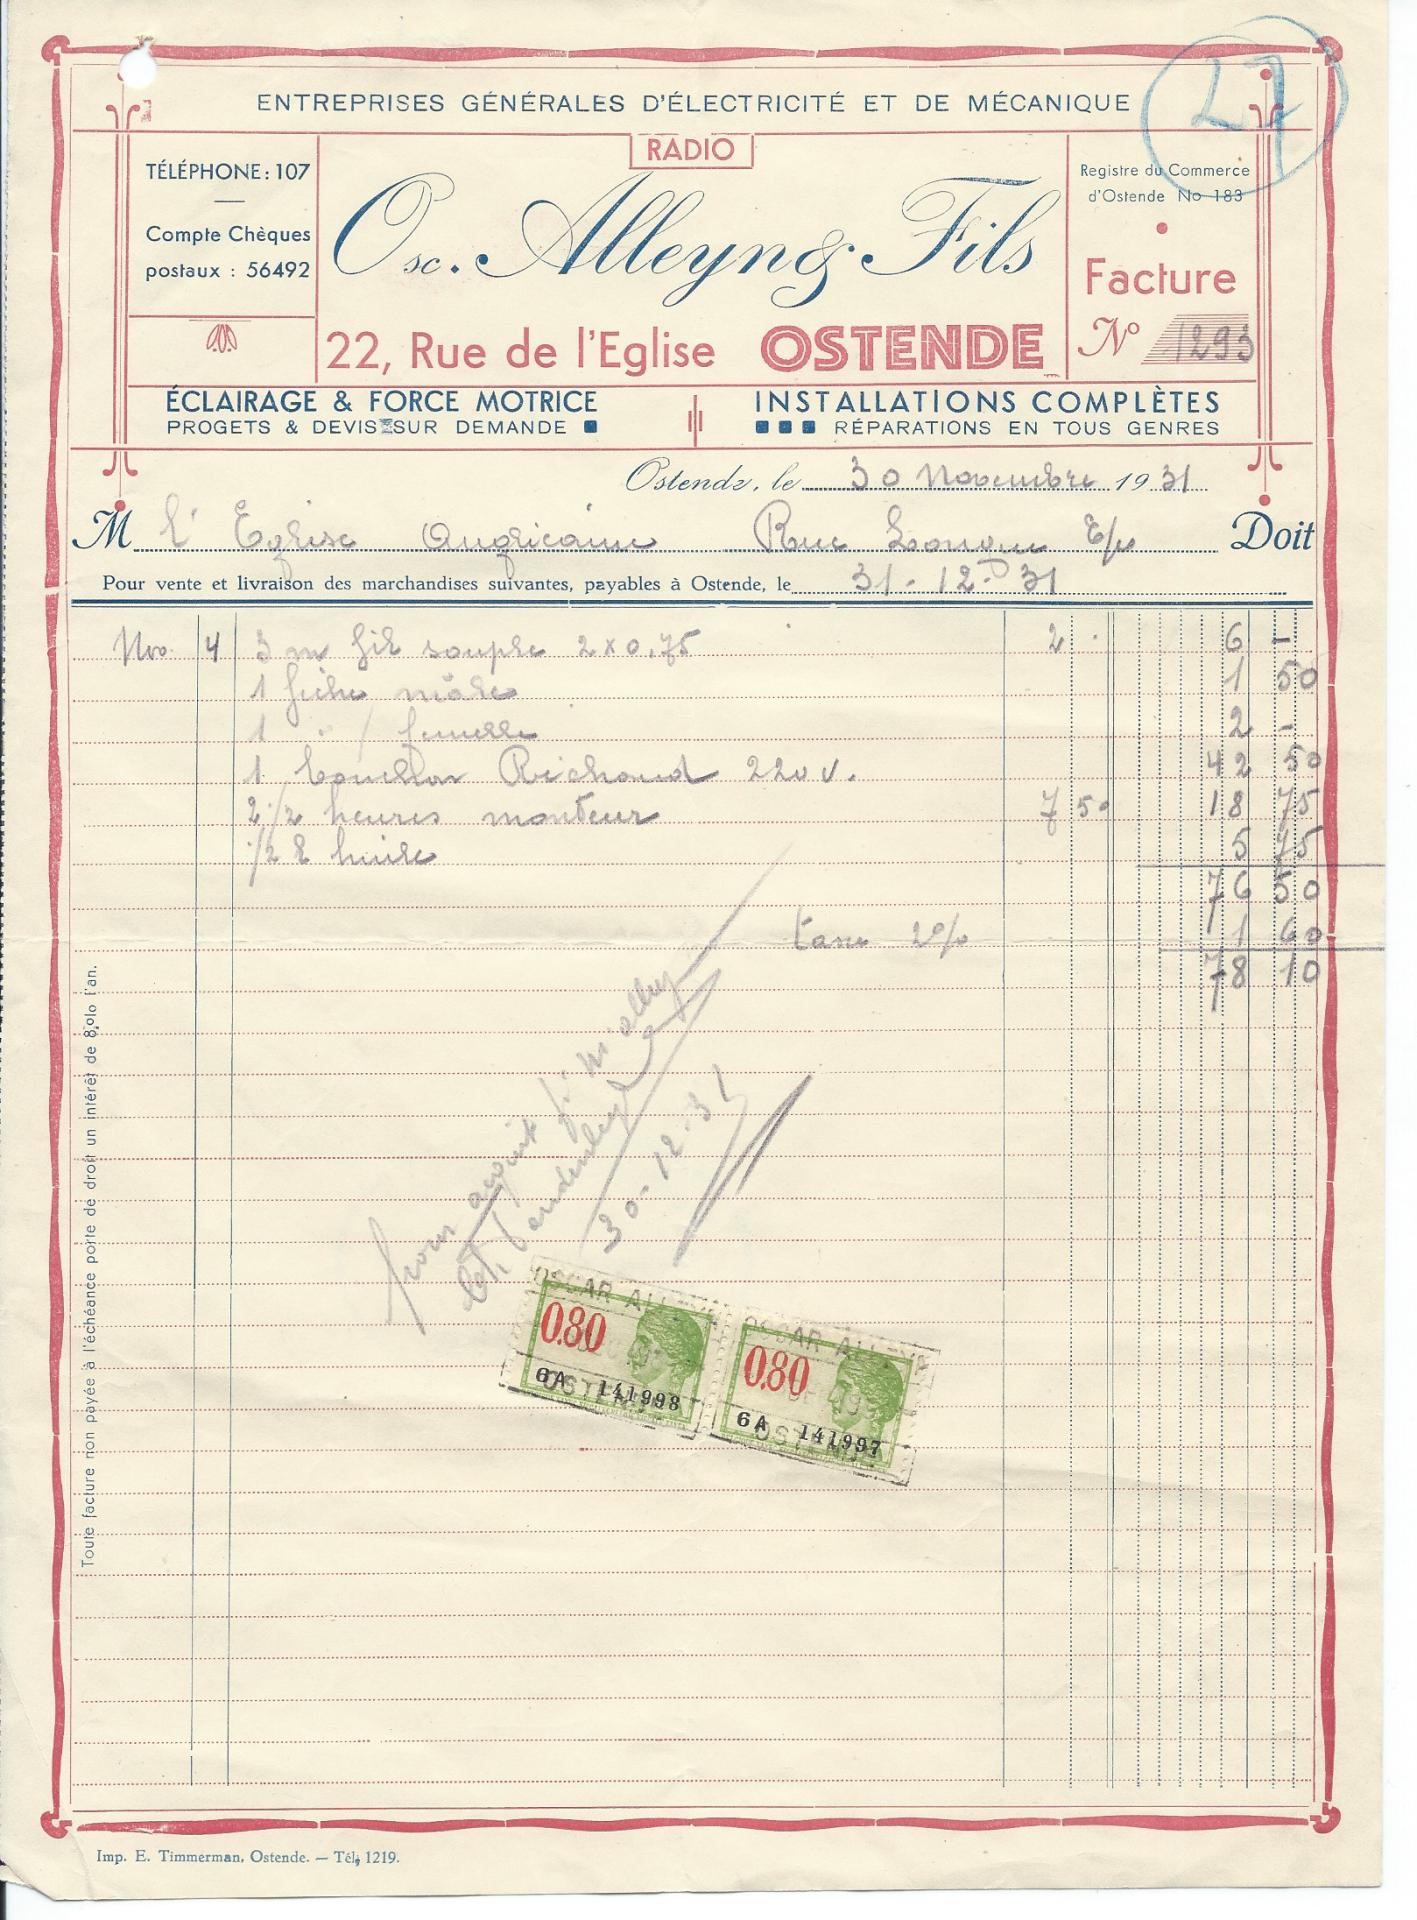 27
ENTREPRISES GÉNÉRALES D'ÉLECTRICITÉ ET DE MÉCANIQUE
RADIO
TÉLÉPHONE: 107
Compte Chèques
postaux : 56492
Osc. Alleyn & Fils
22, Rue de l'Eglise OSTENDE
Registre du Commerce
d'Ostende No 183
Facture
No 1293
ÉCLAIRAGE & FORCE MOTRICE
PROGETS & DEVIS SUR DEMANDE
INSTALLATIONS COMPLÈTES
RÉPARATIONS EN TOUS GENRES
Ostende, le 30 Novembre 1931
M l'Eglise Anglicaine Rue Longue E/v Doit
Pour vente et livraison des marchandises suivantes, payables à Ostende, le 31-12-31
Nov. 4 3 m fil souple 2x0,75 2 . 6 -
1 fiche mâle 1 50
1 " femelle 2 -
1 bouillon Richaud 220 v. 42 50
2 1/2 heures monteur 7 50 18 75
1/2 l huile 5 75
76 50
taxe 2% 1 60
78 10
pour acquit
30-12-31
OSCAR ALLEYN
0.80
6A 141998
OSTENDE
OSCAR ALLEYN
0.80
6A 141997
OSTENDE
Toute facture non payée à l'échéance porte de droit un intérêt de 8 o/o l'an.
Imp. E. Timmerman, Ostende. — Tél. 1219.